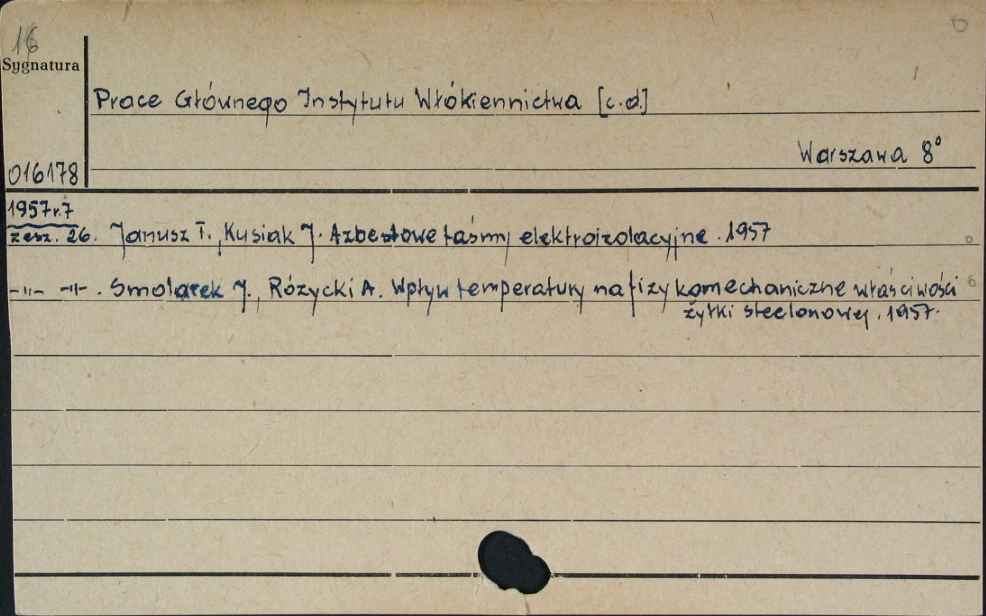 16
Sygnatura
Prace Głównego Instytutu Włókiennictwa [c.d.]
Warszawa 8°
016178
1957 r.7
zesz. 26. Janusz T., Kusiak J. Azbestowe taśmy elektroizolacyjne. 1957
-"- -"-. Smolarek J., Różycki A. Wpływ temperatury na fizykomechaniczne właściwości
żyłki steelonowej. 1957.